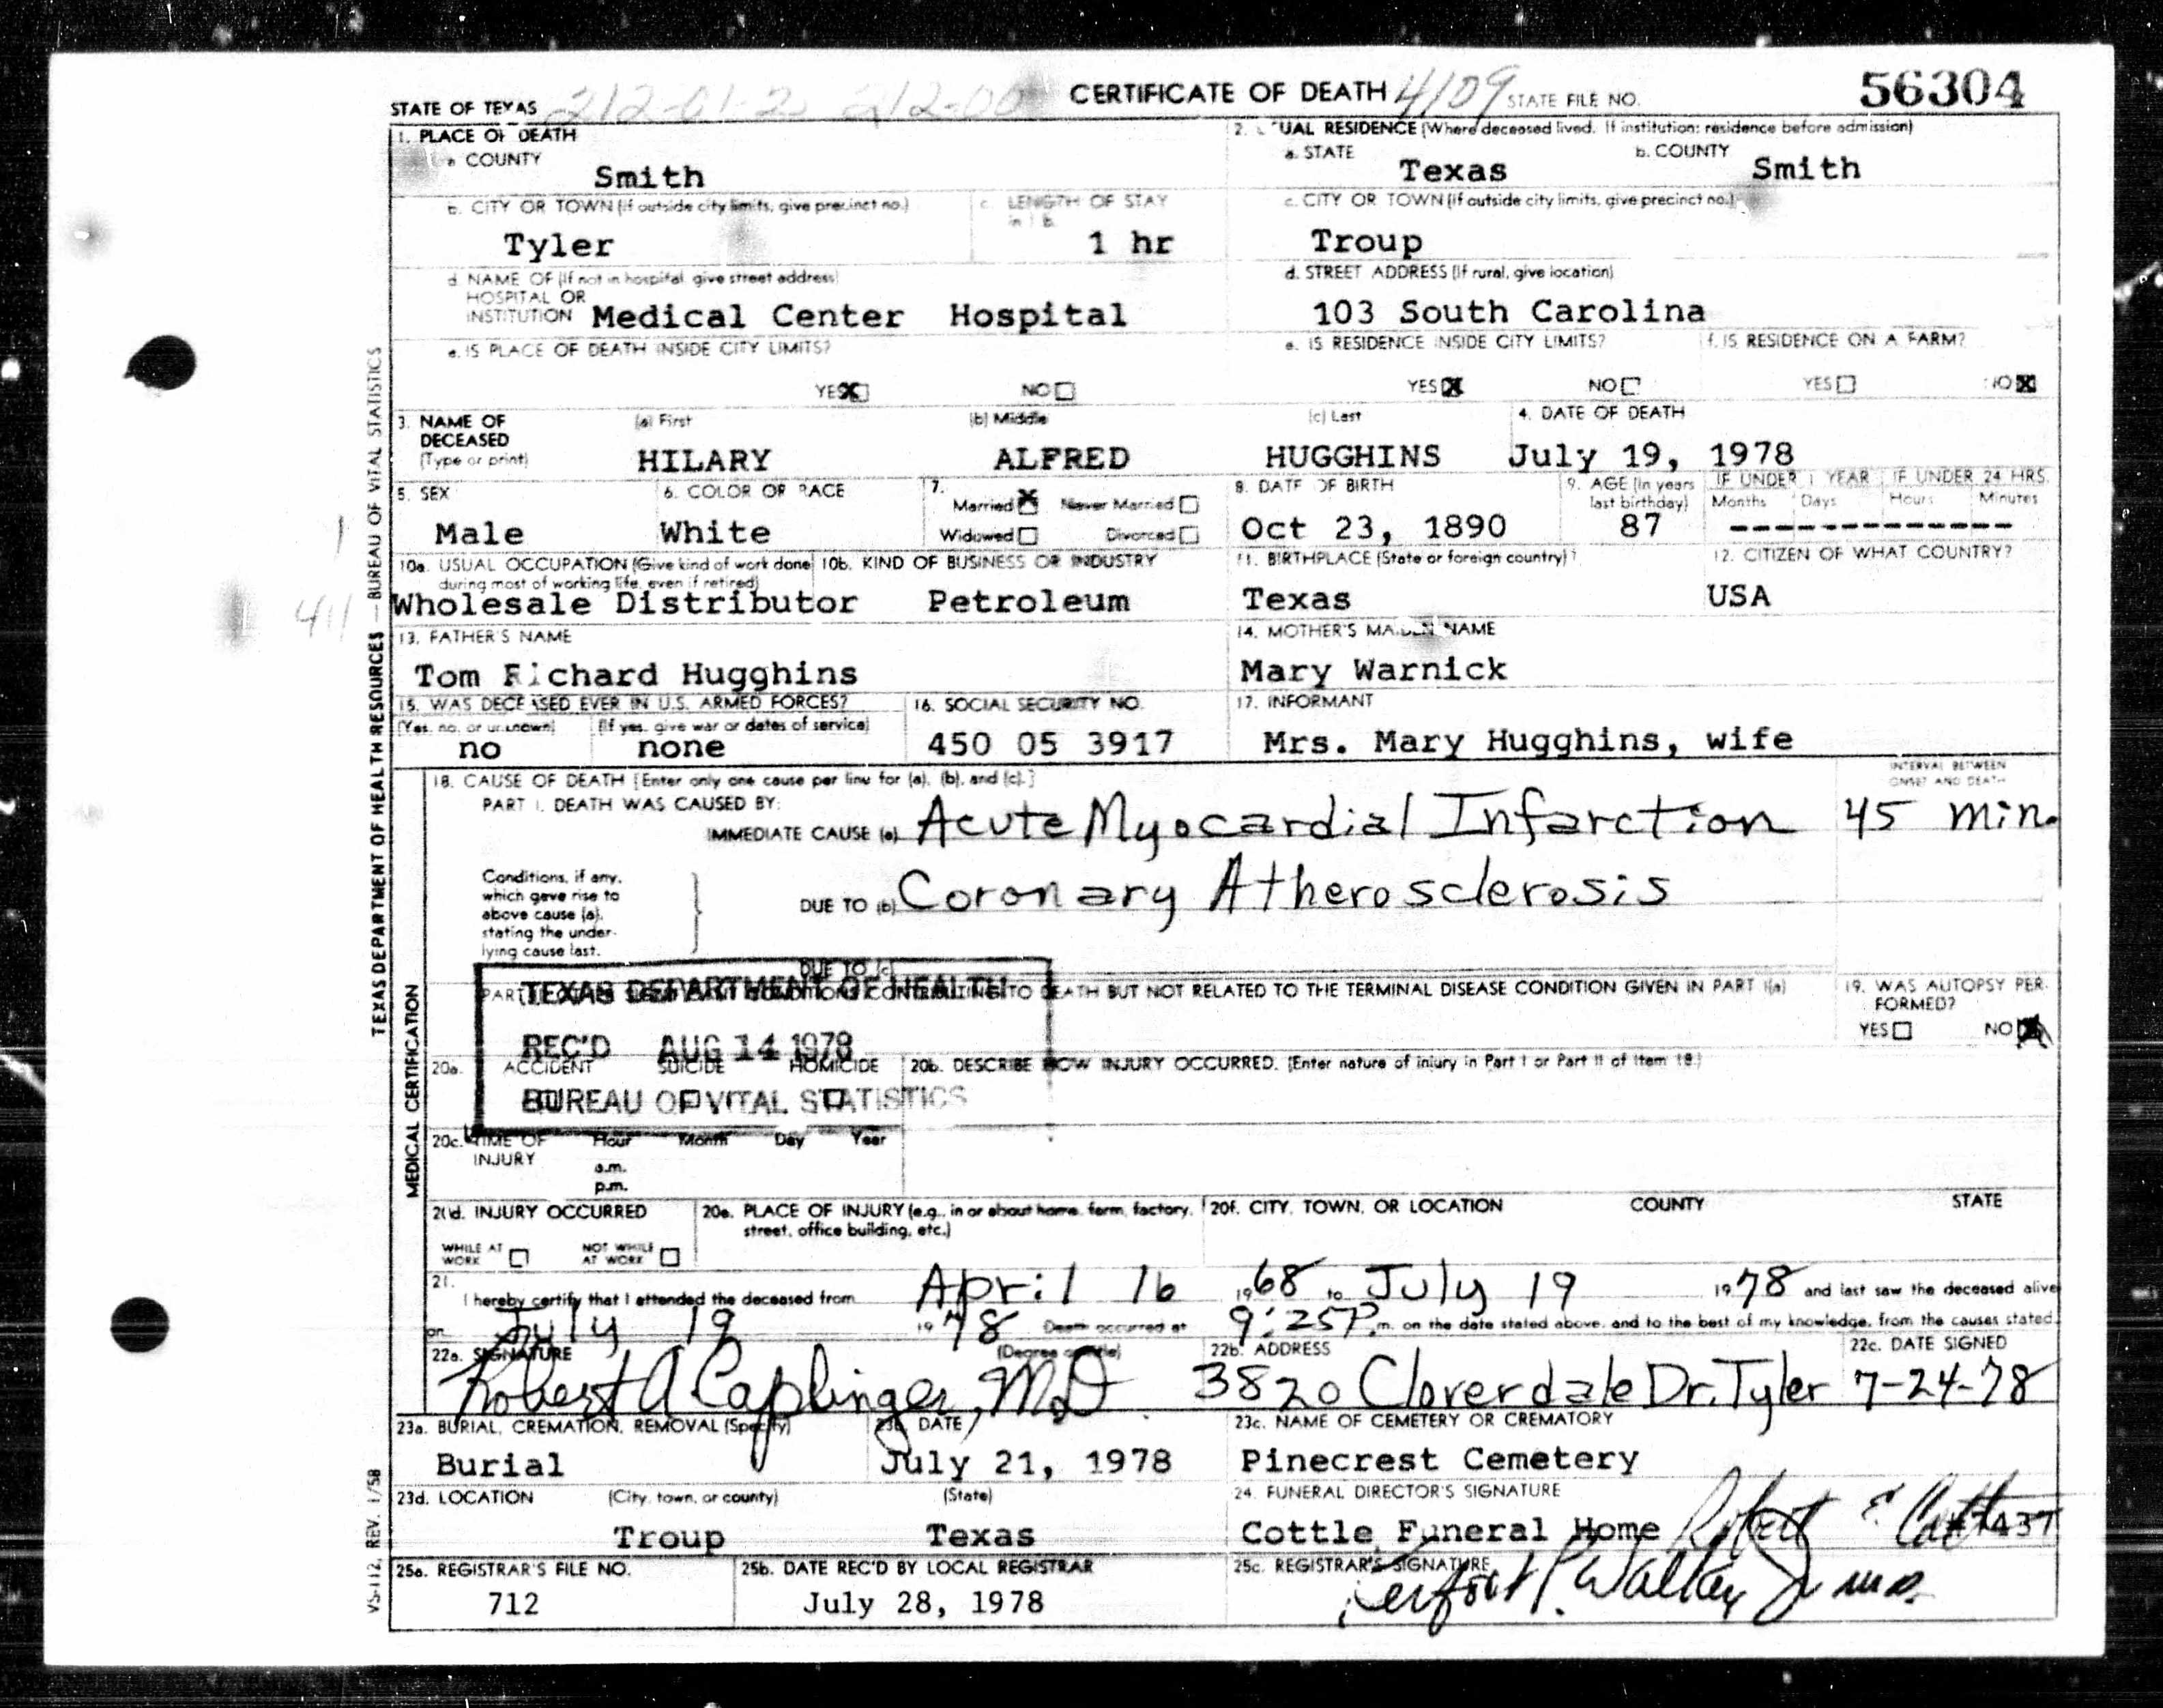 STATE OF TEXAS 212-01-2 212-00 CERTIFICATE OF DEATH 4109 STATE FILE NO. 56304
1. PLACE OF DEATH
a. COUNTY
Smith
2. UAL RESIDENCE (Where deceased lived. If institution: residence before admission)
a. STATE b. COUNTY
Texas Smith
b. CITY OR TOWN (If outside city limits, give precinct no.) c. LENGTH OF STAY in 1 b.
Tyler 1 hr
c. CITY OR TOWN (If outside city limits, give precinct no.)
Troup
d. NAME OF (If not in hospital, give street address)
HOSPITAL OR
INSTITUTION Medical Center Hospital
d. STREET ADDRESS (If rural, give location)
103 South Carolina
e. IS PLACE OF DEATH INSIDE CITY LIMITS?
YES NO
e. IS RESIDENCE INSIDE CITY LIMITS? f. IS RESIDENCE ON A FARM?
YES NO YES NO
3. NAME OF DECEASED (Type or print) (a) First (b) Middle (c) Last 4. DATE OF DEATH
HILARY ALFRED HUGGHINS July 19, 1978
5. SEX 6. COLOR OR RACE 7. Married Never Married Widowed Divorced 8. DATE OF BIRTH 9. AGE (In years last birthday) IF UNDER 1 YEAR Months Days IF UNDER 24 HRS. Hours Minutes
Male White Oct 23, 1890 87 -------------
10a. USUAL OCCUPATION (Give kind of work done during most of working life, even if retired) 10b. KIND OF BUSINESS OR INDUSTRY 11. BIRTHPLACE (State or foreign country) 12. CITIZEN OF WHAT COUNTRY?
Wholesale Distributor Petroleum Texas USA
13. FATHER'S NAME 14. MOTHER'S MAIDEN NAME
Tom Richard Hugghins Mary Warnick
15. WAS DECEASED EVER IN U.S. ARMED FORCES? 16. SOCIAL SECURITY NO. 17. INFORMANT
(Yes, no, or unknown) (If yes, give war or dates of service)
no none 450 05 3917 Mrs. Mary Hugghins, wife
18. CAUSE OF DEATH [Enter only one cause per line for (a), (b), and (c).] INTERVAL BETWEEN ONSET AND DEATH
PART I. DEATH WAS CAUSED BY:
IMMEDIATE CAUSE (a) Acute Myocardial Infarction 45 min.
Conditions, if any,
which gave rise to
above cause (a),
stating the under-
lying cause last.
DUE TO (b) Coronary Atherosclerosis
DUE TO (c)
CONDITIONS CONTRIBUTING TO DEATH BUT NOT RELATED TO THE TERMINAL DISEASE CONDITION GIVEN IN PART I(a)
19. WAS AUTOPSY PER-
FORMED?
YES NO
TEXAS DEPARTMENT OF HEALTH
REC'D AUG 14 1978
BUREAU OF VITAL STATISTICS
20a. ACCIDENT SUICIDE HOMICIDE 20b. DESCRIBE HOW INJURY OCCURRED. (Enter nature of injury in Part I or Part II of Item 18.)
20c. TIME OF INJURY Hour Month Day Year
a.m.
p.m.
20d. INJURY OCCURRED 20e. PLACE OF INJURY (e.g., in or about home, farm, factory, street, office building, etc.) 20f. CITY, TOWN, OR LOCATION COUNTY STATE
WHILE AT WORK NOT WHILE AT WORK
21.
I hereby certify that I attended the deceased from April 16 1968 to July 19 1978 and last saw the deceased alive
on July 19 1978 Death occurred at 9:25P.m. on the date stated above, and to the best of my knowledge, from the causes stated.
22a. SIGNATURE (Degree or title) 22b. ADDRESS 22c. DATE SIGNED
Robert A Caplinger, MD 3820 Cloverdale Dr. Tyler 7-24-78
23a. BURIAL, CREMATION, REMOVAL (Specify) 23b. DATE 23c. NAME OF CEMETERY OR CREMATORY
Burial July 21, 1978 Pinecrest Cemetery
23d. LOCATION (City, town, or county) (State) 24. FUNERAL DIRECTOR'S SIGNATURE
Troup Texas Cottle Funeral Home Robert
25a. REGISTRAR'S FILE NO. 25b. DATE REC'D BY LOCAL REGISTRAR 25c. REGISTRAR'S SIGNATURE
712 July 28, 1978
TEXAS DEPARTMENT OF HEALTH RESOURCES — BUREAU OF VITAL STATISTICS
MEDICAL CERTIFICATION
VS-112, REV. 1/58
411